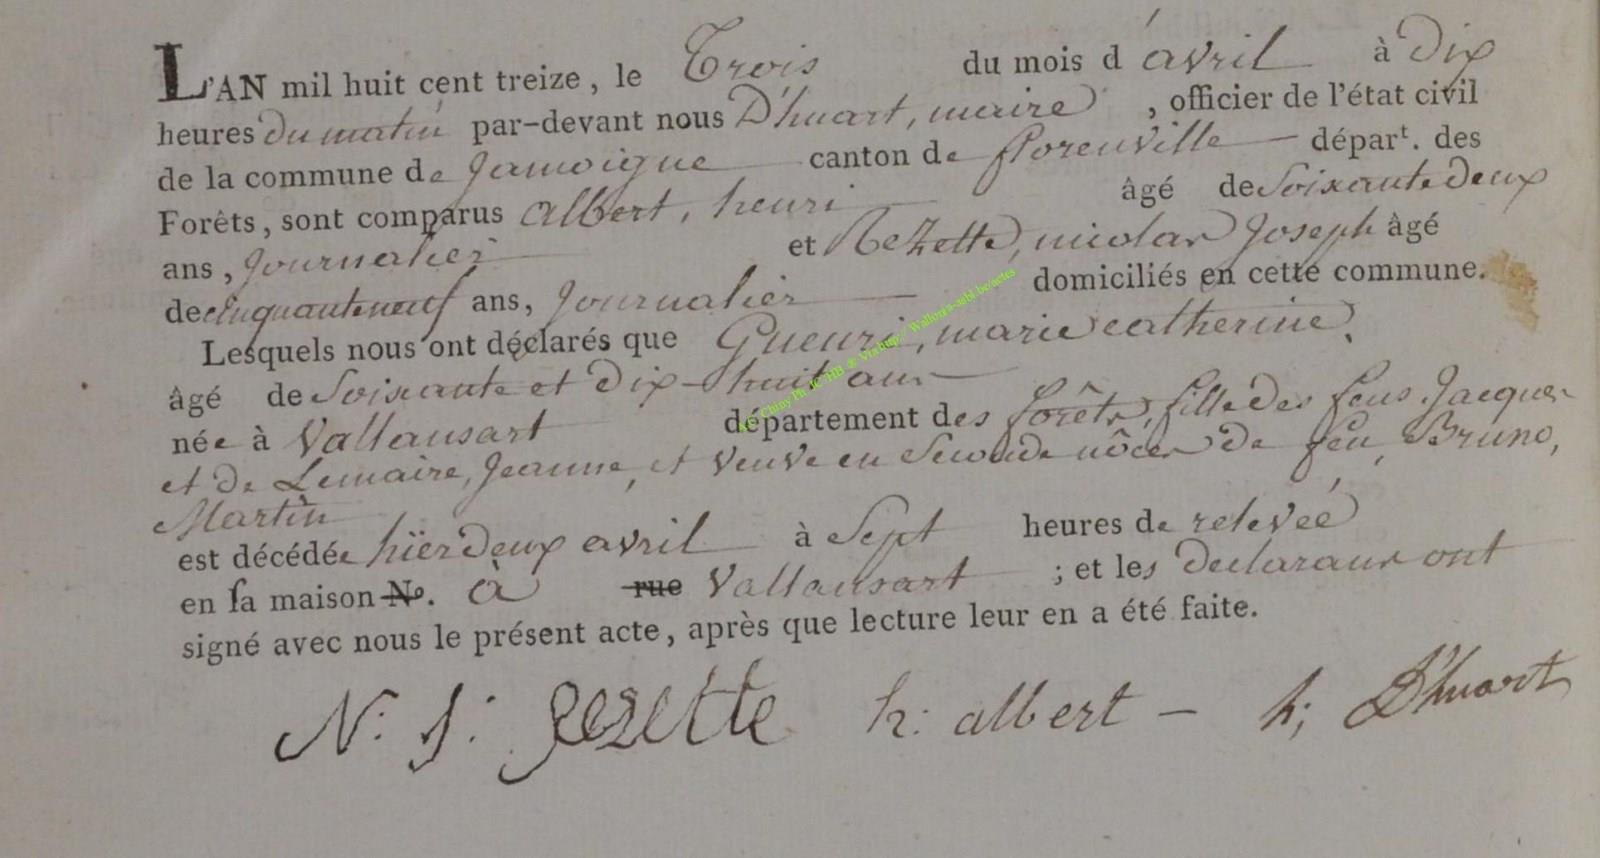 L'AN mil huit cent treize, le Trois du mois d'avril à dix
heures du matin par-devant nous D'huart, maire, officier de l'état civil
de la commune de Jamoigne canton de florenville départ. des
Forêts, sont comparus albert, henri âgé de Soixante deux
ans, Journalier et Rezette, nicolas Joseph âgé
de cinquante neuf ans, Journalier domiciliés en cette commune.
Lesquels nous ont déclarés que Gueuri, marie catherine,
âgé de Soixante et dix-huit ans
née à Vallansart département des forêts, fille des feus Jacques
et de Lemaire, Jeanne, et veuve en Seconde nôces de feu Bruno,
Martin
est décédée hïer deux avril à Sept heures de relevée
en sa maison No. à rue Vallansart ; et les declarans ont
signé avec nous le présent acte, après que lecture leur en a été faite.
N: J: Rezette h: albert - h; D'huart